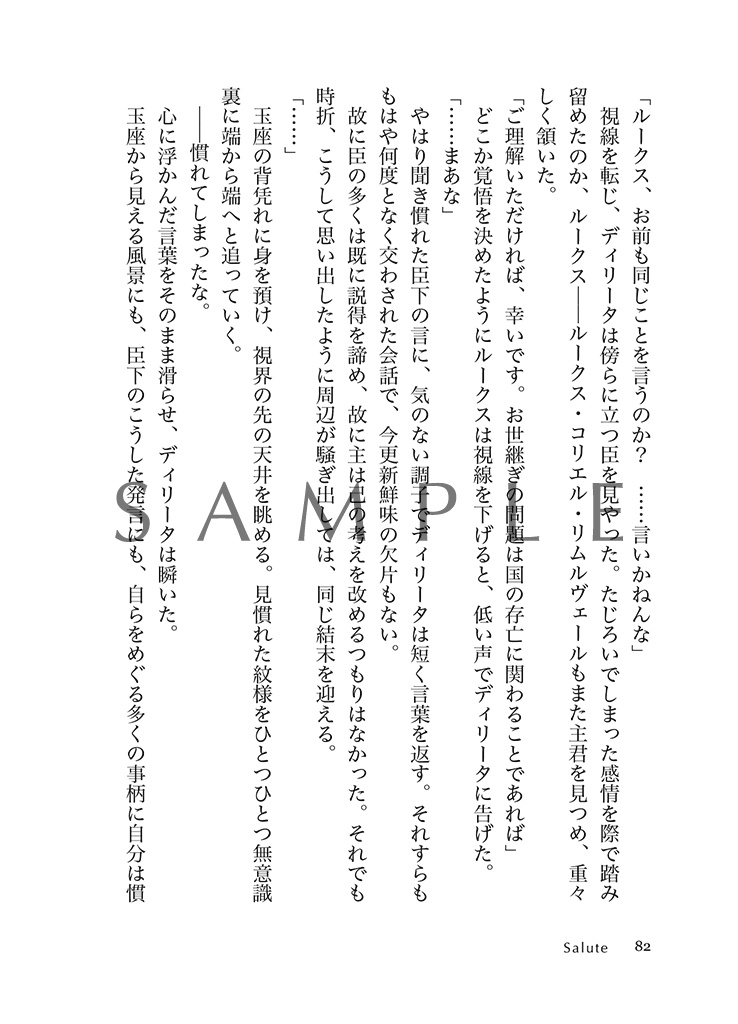 「ルークス、お前も同じことを言うのか？　……言いかねんな」
　視線を転じ、ディリータは傍らに立つ臣を見やった。たじろいでしまった感情を際で踏み
留めたのか、ルークス――ルークス・コリエル・リムルヴェールもまた主君を見つめ、重々
しく頷いた。
「ご理解いただければ、幸いです。お世継ぎの問題は国の存亡に関わることであれば」
　どこか覚悟を決めたようにルークスは視線を下げると、低い声でディリータに告げた。
「……まあな」
　やはり聞き慣れた臣下の言に、気のない調子でディリータは短く言葉を返す。それすらも
もはや何度となく交わされた会話で、今更新鮮味の欠片もない。
　故に臣の多くは既に説得を諦め、故に主は己の考えを改めるつもりはなかった。それでも
時折、こうして思い出したように周辺が騒ぎ出しては、同じ結末を迎える。
「……」
　玉座の背凭れに身を預け、視界の先の天井を眺める。見慣れた紋様をひとつひとつ無意識
裏に端から端へと追っていく。
　――慣れてしまったな。
　心に浮かんだ言葉をそのまま滑らせ、ディリータは瞬いた。
　玉座から見える風景にも、臣下のこうした発言にも、自らをめぐる多くの事柄に自分は慣
SAMPLE
Salute 82